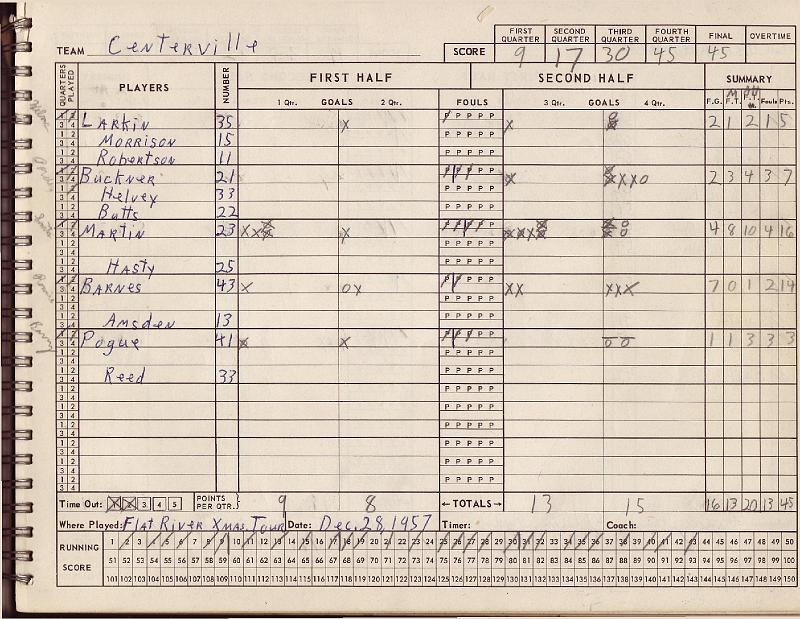 FIRST QUARTER SECOND QUARTER THIRD QUARTER FOURTH QUARTER FINAL OVERTIME
TEAM Centerville SCORE 9 17 30 45 45
QUARTERS PLAYED PLAYERS NUMBER FIRST HALF SECOND HALF SUMMARY
1 Qtr. GOALS 2 Qtr. FOULS 3 Qtr. GOALS 4 Qtr. F.G. F.T. Fouls Pts.
LARKIN 35 2 1 2 1 5
MORRISON 15
Robertson 11
Buckner 21 2 3 4 3 7
Helvey 33
Butts 22
MARTIN 23 4 8 10 4 16
HASTY 25
BARNES 43 7 0 1 2 14
Amsden 13
Pogue 41 1 1 3 3 3
Reed 33
Time Out: 1 2 3 4 5 POINTS PER QTR. 9 8 ←TOTALS→ 13 15 16 13 20 13 45
Where Played: Flat River Xmas Tour Date: Dec. 28, 1957 Timer: Coach:
RUNNING SCORE
1 2 3 4 5 6 7 8 9 10 11 12 13 14 15 16 17 18 19 20 21 22 23 24 25 26 27 28 29 30 31 32 33 34 35 36 37 38 39 40 41 42 43 44 45 46 47 48 49 50
51 52 53 54 55 56 57 58 59 60 61 62 63 64 65 66 67 68 69 70 71 72 73 74 75 76 77 78 79 80 81 82 83 84 85 86 87 88 89 90 91 92 93 94 95 96 97 98 99 100
101 102 103 104 105 106 107 108 109 110 111 112 113 114 115 116 117 118 119 120 121 122 123 124 125 126 127 128 129 130 131 132 133 134 135 136 137 138 139 140 141 142 143 144 145 146 147 148 149 150